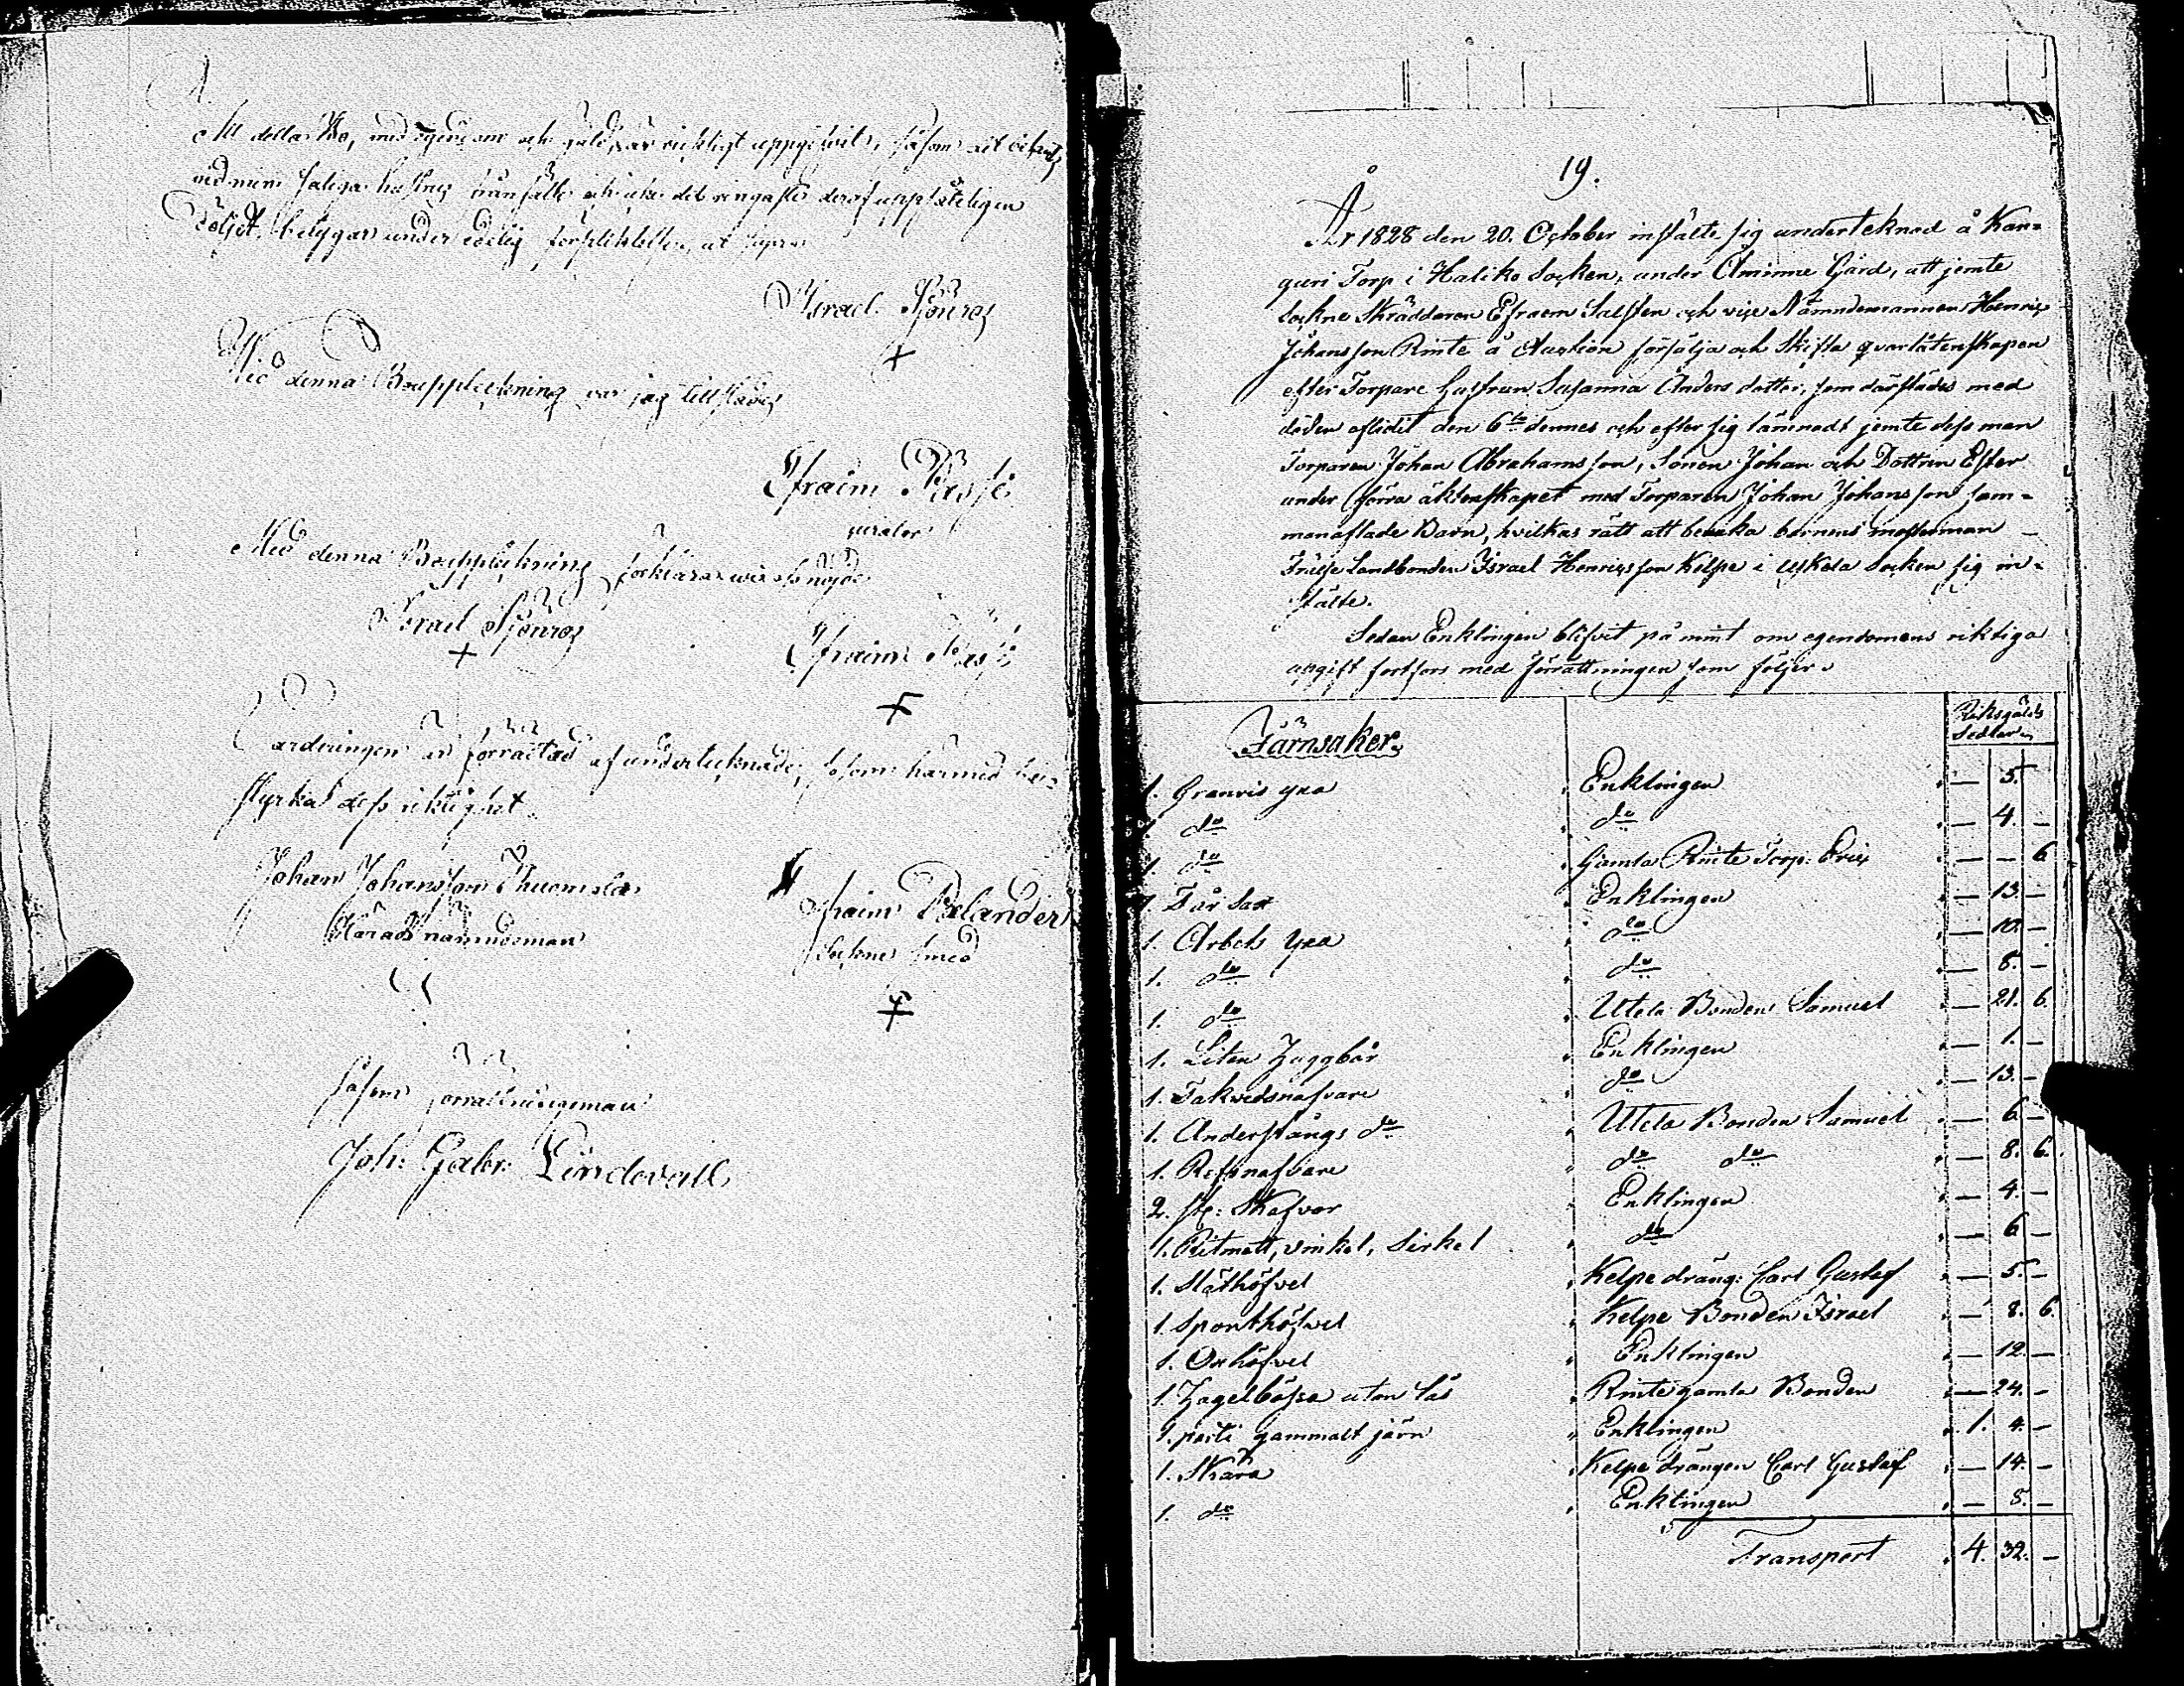 At detta Bo, med egendom och gäld, är ricktigt uppgifvit, såsom det befants
ved min saliga hustrus frånfälle och icke det ringaste deraf uppsåteligen
döljet, betygar under edelig förplicktelse, ut supra
Israel Sjöuroz
+
Vid denna Bouppteckning var jag tillstädes
Efraim Passi
curator
Med denna Bouppteckning förklarar wi oss nöjde
Israel Sjöuroz
+
Efraim Passi
+
Värderingen är förrättad af undertecknade, som härmed be-
styrka dess riktighet.
Johan Johansson Thuomola
Härads nämndeman
Efraim Bolander
Sockne Smed
+
Såsom förrättningsman
Joh: Gabr: Lindevall
19.
År 1828 den 20. October instälte sig undertecknad å Kan-
guri Torp i Haliko Socken, under Åminne Gård, att jemte
Sockne Skräddaren Efraem Salsten och vice Nämndemannen Henric
Johansson Rinte å Auction försälja och skifta qvarlåtenskapen
efter Torpare hustrun Susanna Anders dotter, som därstädes med
döden aflidit den 6te dennes och efter sig lämnadt jemte dess man
Torparen Johan Abrahamsson, Sonen Johan och Dottren Ester
under förra äktenskapet med Torparen Johan Johansson sam-
manaflade Barn, hvilkas rätt att bevaka barnens mosterman
Frälse Landbonden Israel Henricsson Kelpe i Uskela Socken sig in-
stälte.
Sedan Enklingen blifvit påmint om egendomens riktiga
upgift fortfors med förrättningen som följer.
Järnsaker. Riksgälds Sedlar.
1. Granris yxa Enklingen — 5. —
1. do do — 4. —
1. do Gamla Rinte Torp. Eric — — 6
1. Får Sax Enklingen — 13 —
1. Arbets yxa do — 10. —
1. do do — 8. —
1. do Utela Bonden Samuel — 21. 6.
1. Liten Huggbår Enklingen — 1. —
1. Takvedsnafvare do — 13. —
1. Anderstångs do Utela Bonden Samuel — 6 —
1. Refsnafvare do do — 8. 6.
2. st: Skafvar Enklingen — 4. —
1. Ritmott, vinkel, Sirkel do — 6 —
1. Släthöfvel Kelpe dräng: Carl Gustaf — 5. —
1. Sponthöfvel Kelpe Bonden Israel — 8. 6.
1. Oxhöfvel Enklingen — 12. —
1. Hagelbössa utan lås Rinte gamla Bonden — 24. —
1. parti gammalt järn Enklingen 1. 4. —
1. Skära Kelpe drängen Carl Gustaf — 14. —
1. do Enklingen — 8. —
Transport 4. 32. —